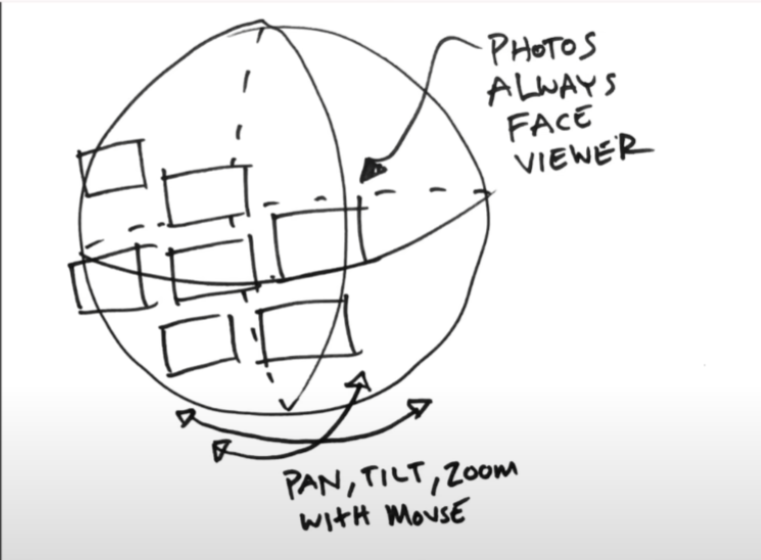 PHOTOS
ALWAYS
FACE
VIEWER
PAN, TILT, ZOOM
WITH MOUSE